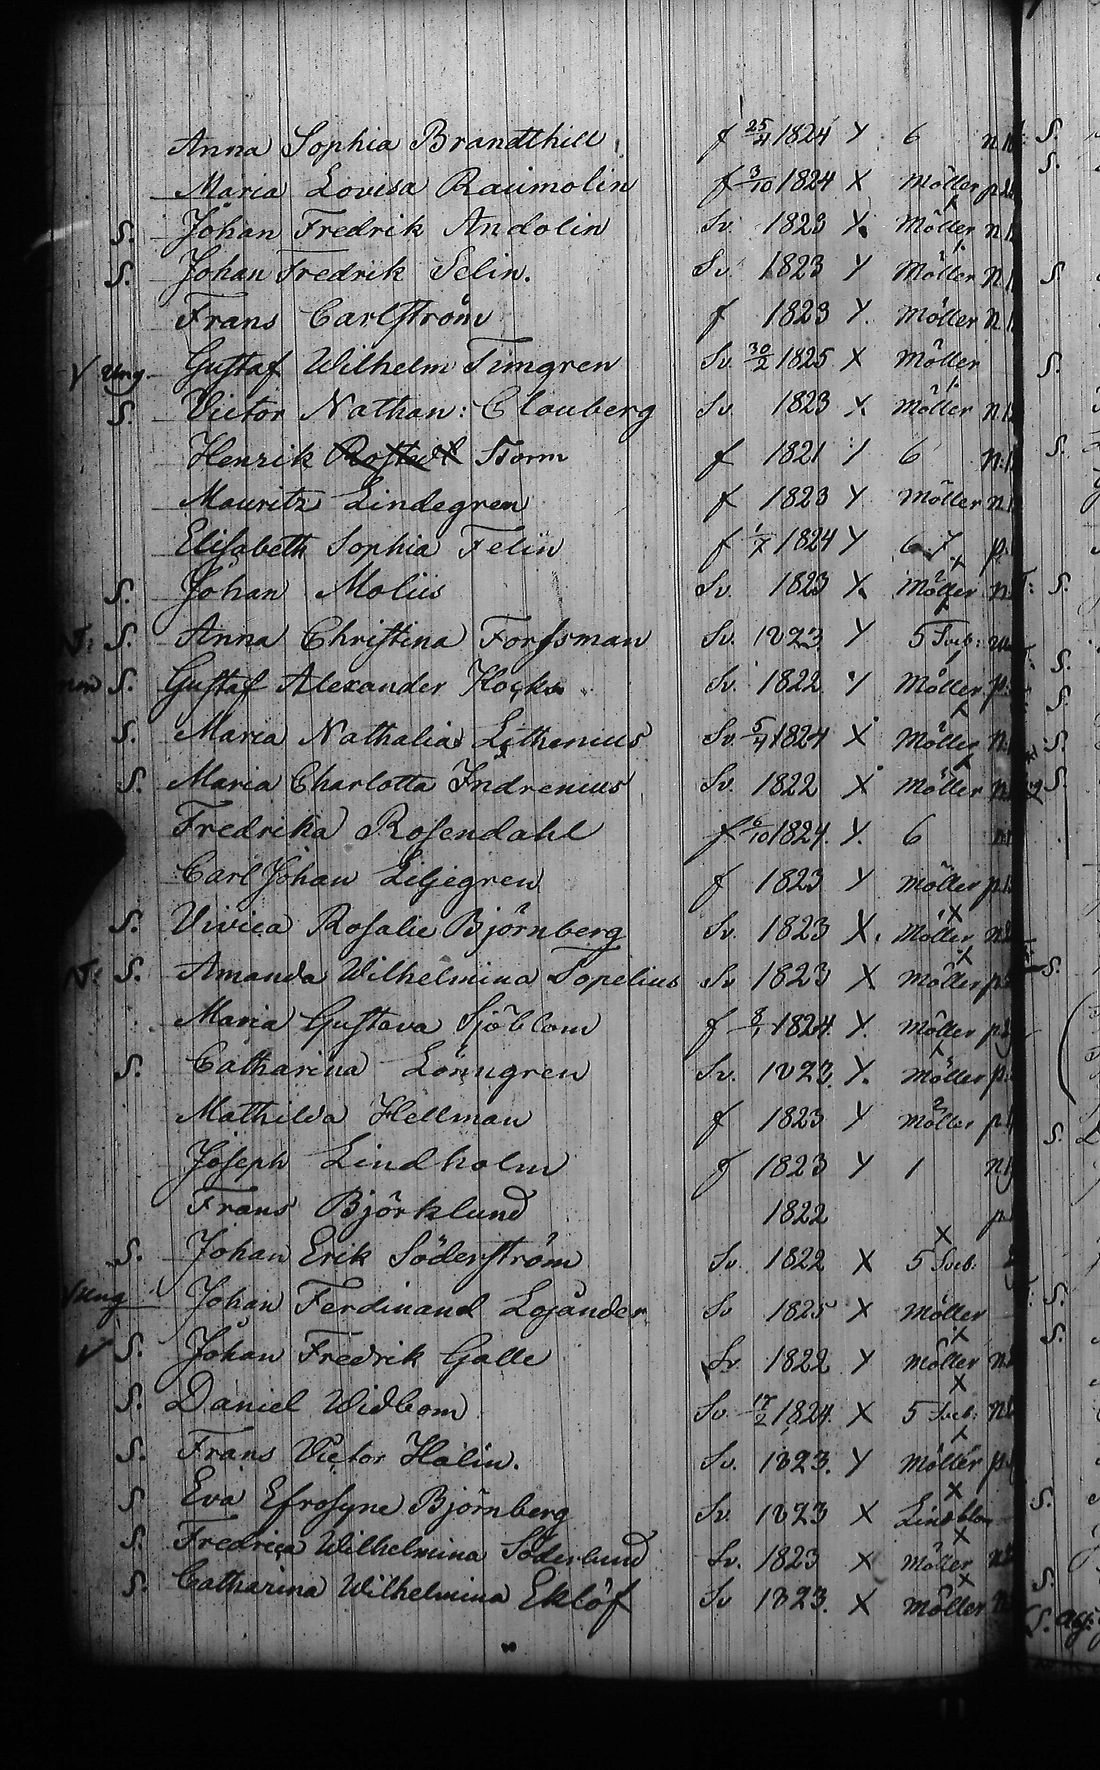 Anna Sophia Brandthill f 25/4 1824 Y 6
Maria Lovisa Raumolin f 3/10 1824 X Möller
S. Johan Fredrik Andolin Sv. 1823 Y. Möller
S. Johan Fredrik Selin. Sv. 1823 Y Möller
Frans Carlström f 1823 Y. Möller
V Ung. Gustaf Wilhelm Timgren Sv. 30/2 1825 X Möller
S. Victor Nathan: Clouberg Sv. 1823 Y. Möller
Henrik Storm f 1821 Y 6
Mauritz Lindegren f 1823 Y Möller
Elisabeth Sophia Felin f 1/7 1824 Y 6 7
S. Johan Molüs Sv. 1823 X. Möller
S. Anna Christina Forssman Sv. 1823 Y 5 Sveb:
S. Gustaf Alexander Sv. 1822 Y Möller
S. Maria Nathalia Lithenius Sv. 5/4 1824 X Möller
S. Maria Charlotta Indrenius Sv. 1822 X Möller
Fredrika Rosendahl f 6/10 1824. Y. 6
Carl Johan Liljegren f 1823 Y Möller
S. Vivica Rosalie Björnberg Sv. 1823 X. Möller
S. Amanda Wilhelmina Topelius Sv 1823 X Möller
Maria Gustava Sjöblom f 1824. Y. Möller
S. Catharina Lönngren Sv. 1823. Y. Möller
Mathilda Hellman f 1823 Y Möller
Joseph Lindholm f 1823 Y 1
Frans Björklund 1822
S. Johan Erik Söderström Sv. 1822 X 5 Sveb.
Ung Johan Ferdinand Lojander Sv 1825 X Möller
S. Johan Fredrik Galle Sv. 1822 Y Möller
S. Daniel Widbom Sv. 17/2 1824. X 5 Sveb:
S. Frans Victor Halin. Sv. 1823. Y Möller
S Eva Efrosyne Björnberg Sv. 1823 X Lindblom
S. Fredrica Wilhelmina Söderlund Sv. 1823 X Möller
S. Catharina Wilhelmina Eklöf Sv 1823. X Möller